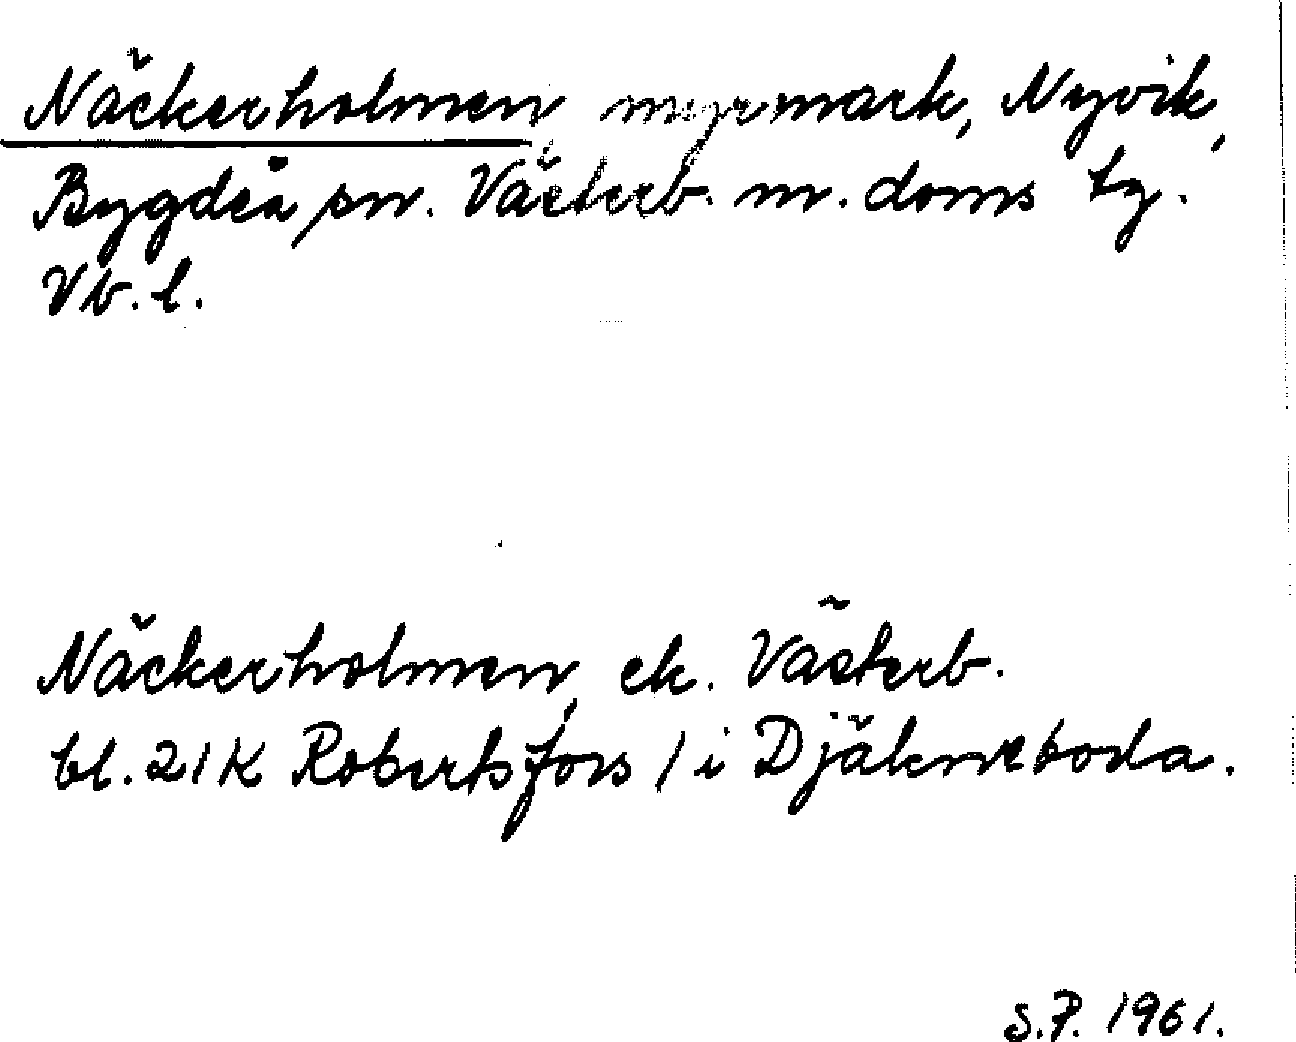 Näckerholmen, myrmark, Nyvik,
Bygdeå sn. Västerb. m. doms tg.
Vb. l.
Näckerholmen, ek. Västerb.
bl. 21K Robertsfors / i Djäkneboda.
S.P. 1961.